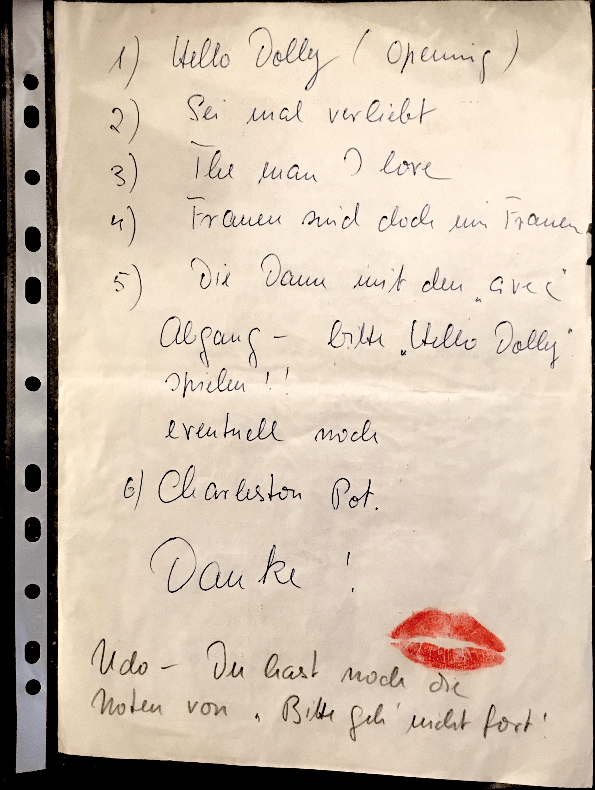 1) Hello Dolly (Opening)
2) Sei mal verliebt
3) The man I love
4) Frauen sind doch nur Frauen
5) Die Dame mit den „avec“
Abgang – bitte „Hello Dolly“
spielen!!
eventuell noch
6) Charleston Pot.
Danke!
Udo – Du hast noch die
Noten von „Bitte geh' nicht fort!